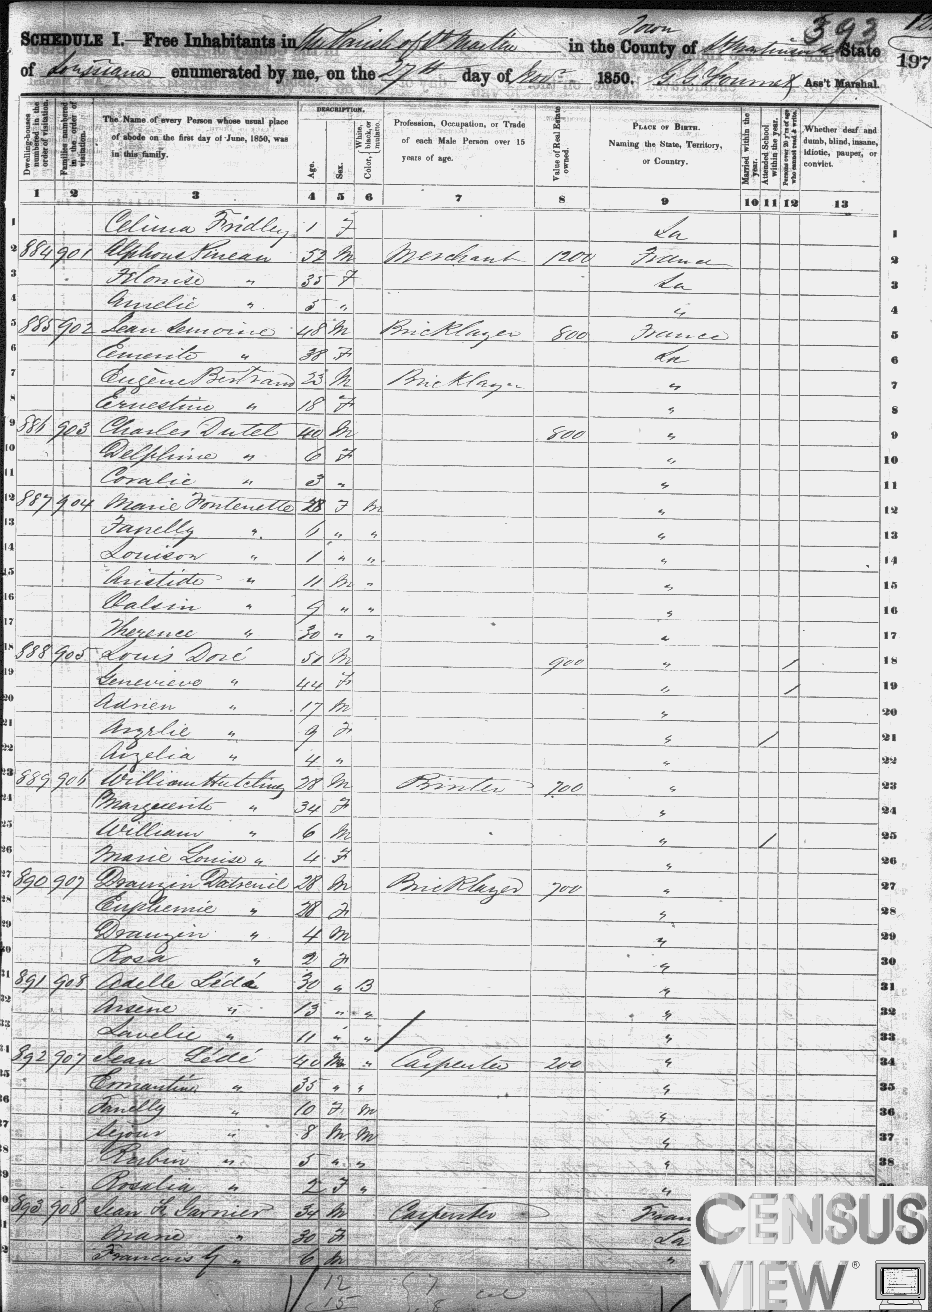 393
SCHEDULE I.—Free Inhabitants in the Parish of St Martin in the County of Town St Martinsville State
of Louisiana enumerated by me, on the 27th day of Novr 1850. Ass't Marshal.
197
Dwelling-houses numbered in the order of visitation.
Families numbered in the order of visitation.
The Name of every Person whose usual place of abode on the first day of June, 1850, was in this family.
DESCRIPTION.
Age.
Sex.
Color, White, black, or mulatto.
Profession, Occupation, or Trade of each Male Person over 15 years of age.
Value of Real Estate owned.
PLACE OF BIRTH. Naming the State, Territory, or Country.
Married within the year.
Attended School within the year.
Persons over 20 y'rs of age who cannot read & write.
Whether deaf and dumb, blind, insane, idiotic, pauper, or convict.
1 2 3 4 5 6 7 8 9 10 11 12 13
1 Celima Fridley 1 F La 1
2 884 901 Alphons Pineau 52 M Merchant 1200 France 2
3 Helonise " 35 F La 3
4 Amelie " 5 " " 4
5 885 902 Jean Lemoine 48 M Bricklayer 800 France 5
6 Emerite " 38 F La 6
7 Eugène Bertrand 23 M Bricklayer " 7
8 Ernestine " 18 F " 8
9 886 903 Charles Dutel 40 M 800 " 9
10 Delphine " 6 F " 10
11 Coralie " 3 " " 11
12 887 904 Marie Fontenette 28 F M " 12
13 Fanelly " 6 " " " 13
14 Louison " 1 " " " 14
15 Aristide " 11 M " " 15
16 Valsin " 9 " " " 16
17 Therence " 30 " " " 17
18 888 905 Louis Doré 51 M 900 " / 18
19 Genevieve " 44 F " / 19
20 Adrien " 17 M " 20
21 Angelie " 9 F " / 21
22 Azelia " 4 " " 22
23 889 906 William Hutching 28 M Printer 700 " 23
24 Marguerite " 34 F " 24
25 William " 6 M " / 25
26 Marie Louise " 4 F " 26
27 890 907 Drauzin Dutreuil 28 M Bricklayer 700 " 27
28 Euphemie " 28 F " 28
29 Drauzin " 4 M " 29
30 Rosa " 2 F " 30
31 891 908 Adelle Lédé 30 " B " 31
32 Arsène " 13 " " " 32
33 Lavelie " 11 " " " 33
34 892 907 Jean Lédé 40 M " Carpenter 200 " 34
35 Ermantine " 35 " " " 35
36 Fanelly " 10 F M " 36
37 Sejour " 8 M M " 37
38 Rubin " 5 " " " 38
39 Rosalia " 2 F " "
40 893 908 Jean L Garnier 34 M Carpenter Fran
41 Marie " 30 F La
42 Francois G " 6 M "
12
15
CENSUS
VIEW®